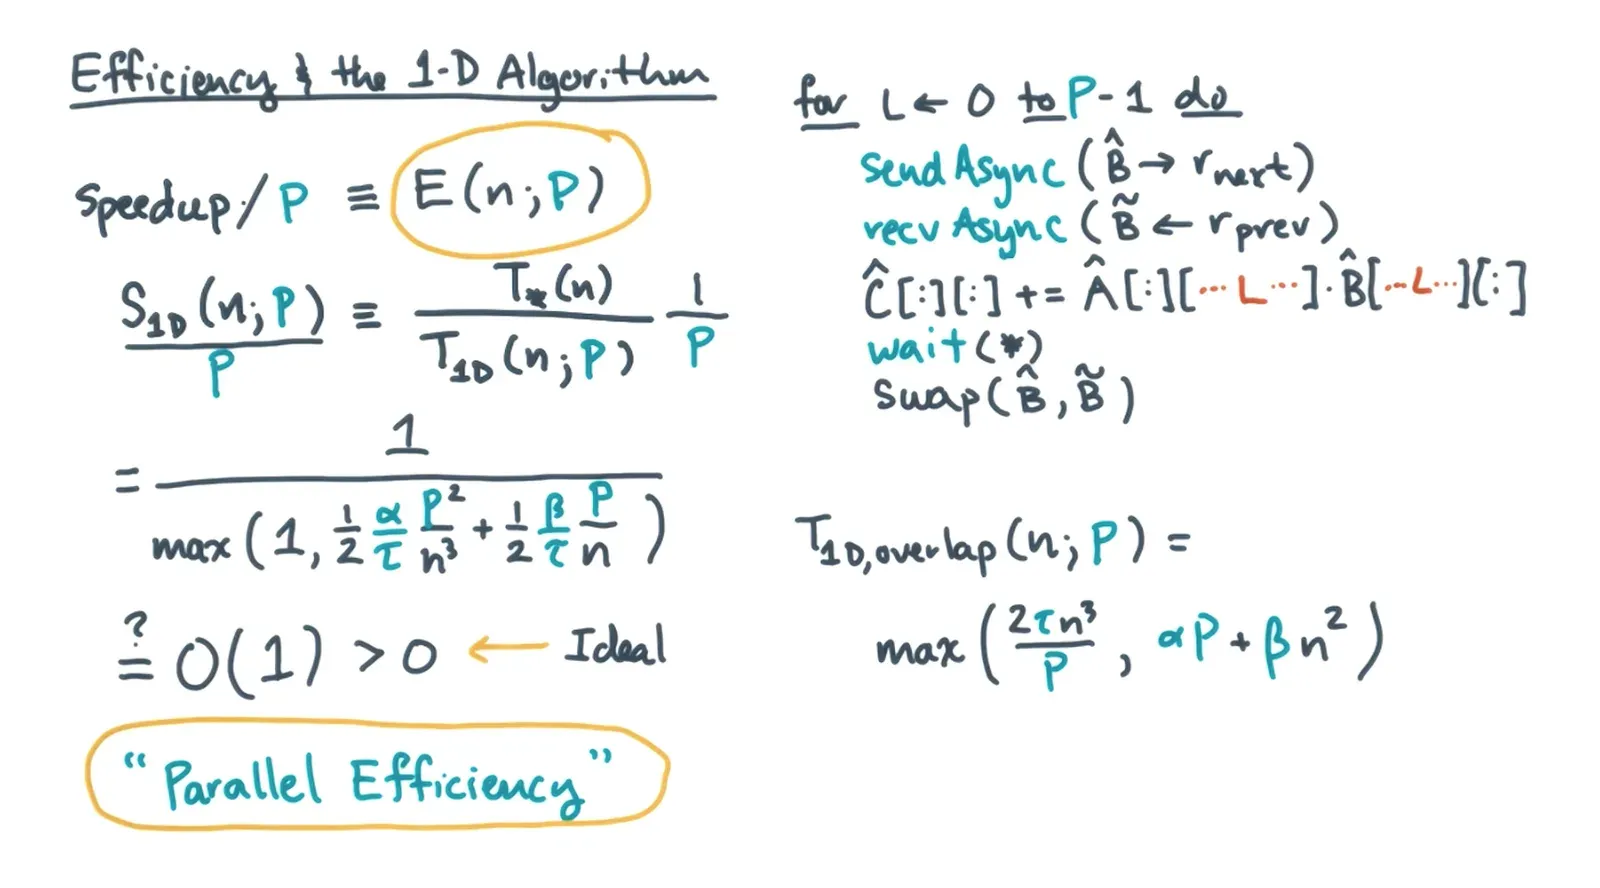 Efficiency & the 1-D Algorithm
Speedup/P ≡ E(n;P)
S_1D(n;P)/P ≡ T_*(n)/T_1D(n;P) 1/P
= 1/max(1, 1/2 α/τ P²/n³ + 1/2 β/τ P/n)
?= O(1) > 0 ← Ideal
"Parallel Efficiency"
for L ← 0 to P-1 do
sendAsync(B̂ → r_next)
recvAsync(B̃ ← r_prev)
Ĉ[:][:] += Â[:][...L...]·B̂[...L...][:]
wait(*)
swap(B̂, B̃)
T_1D,overlap(n;P) =
max(2τn³/P, αP + βn²)